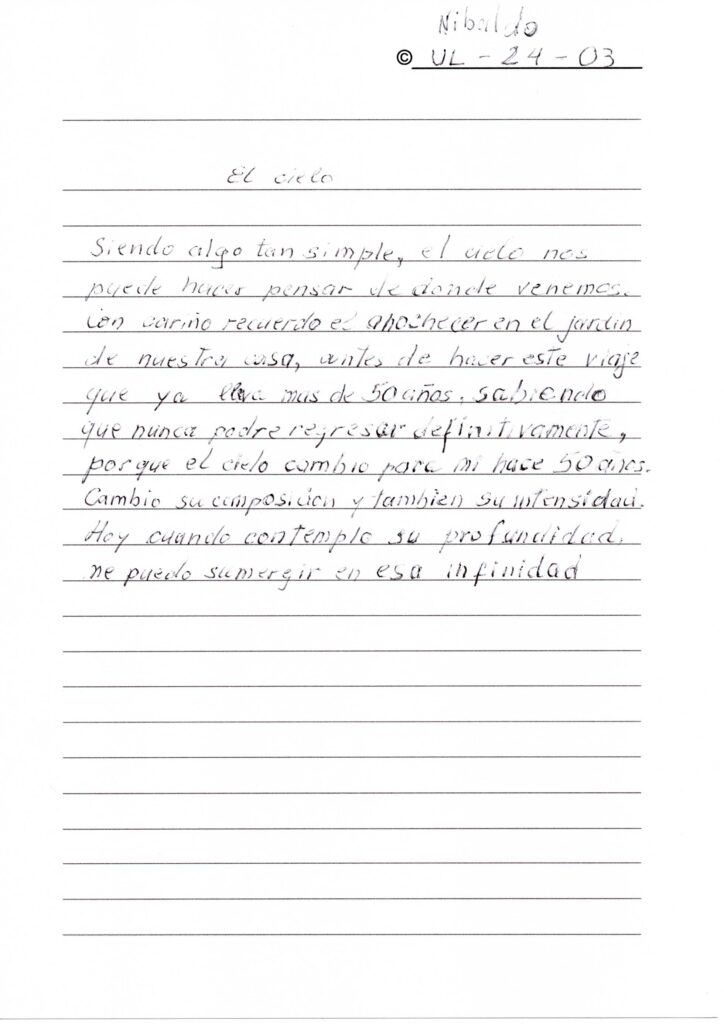 Nibaldo
© UL - 24 - 03
El cielo
Siendo algo tan simple, el cielo nos
puede hacer pensar de donde venemos.
Con cariño recuerdo el anochecer en el jardin
de nuestra casa, antes de hacer este viaje
que ya lleva mas de 50 años, sabiendo
que nunca podre regresar definitivamente,
porque el cielo cambio para mi hace 50 años.
Cambio su composición y tambien su intensidad.
Hoy cuando contemplo su profundidad,
me puedo sumergir en esa infinidad